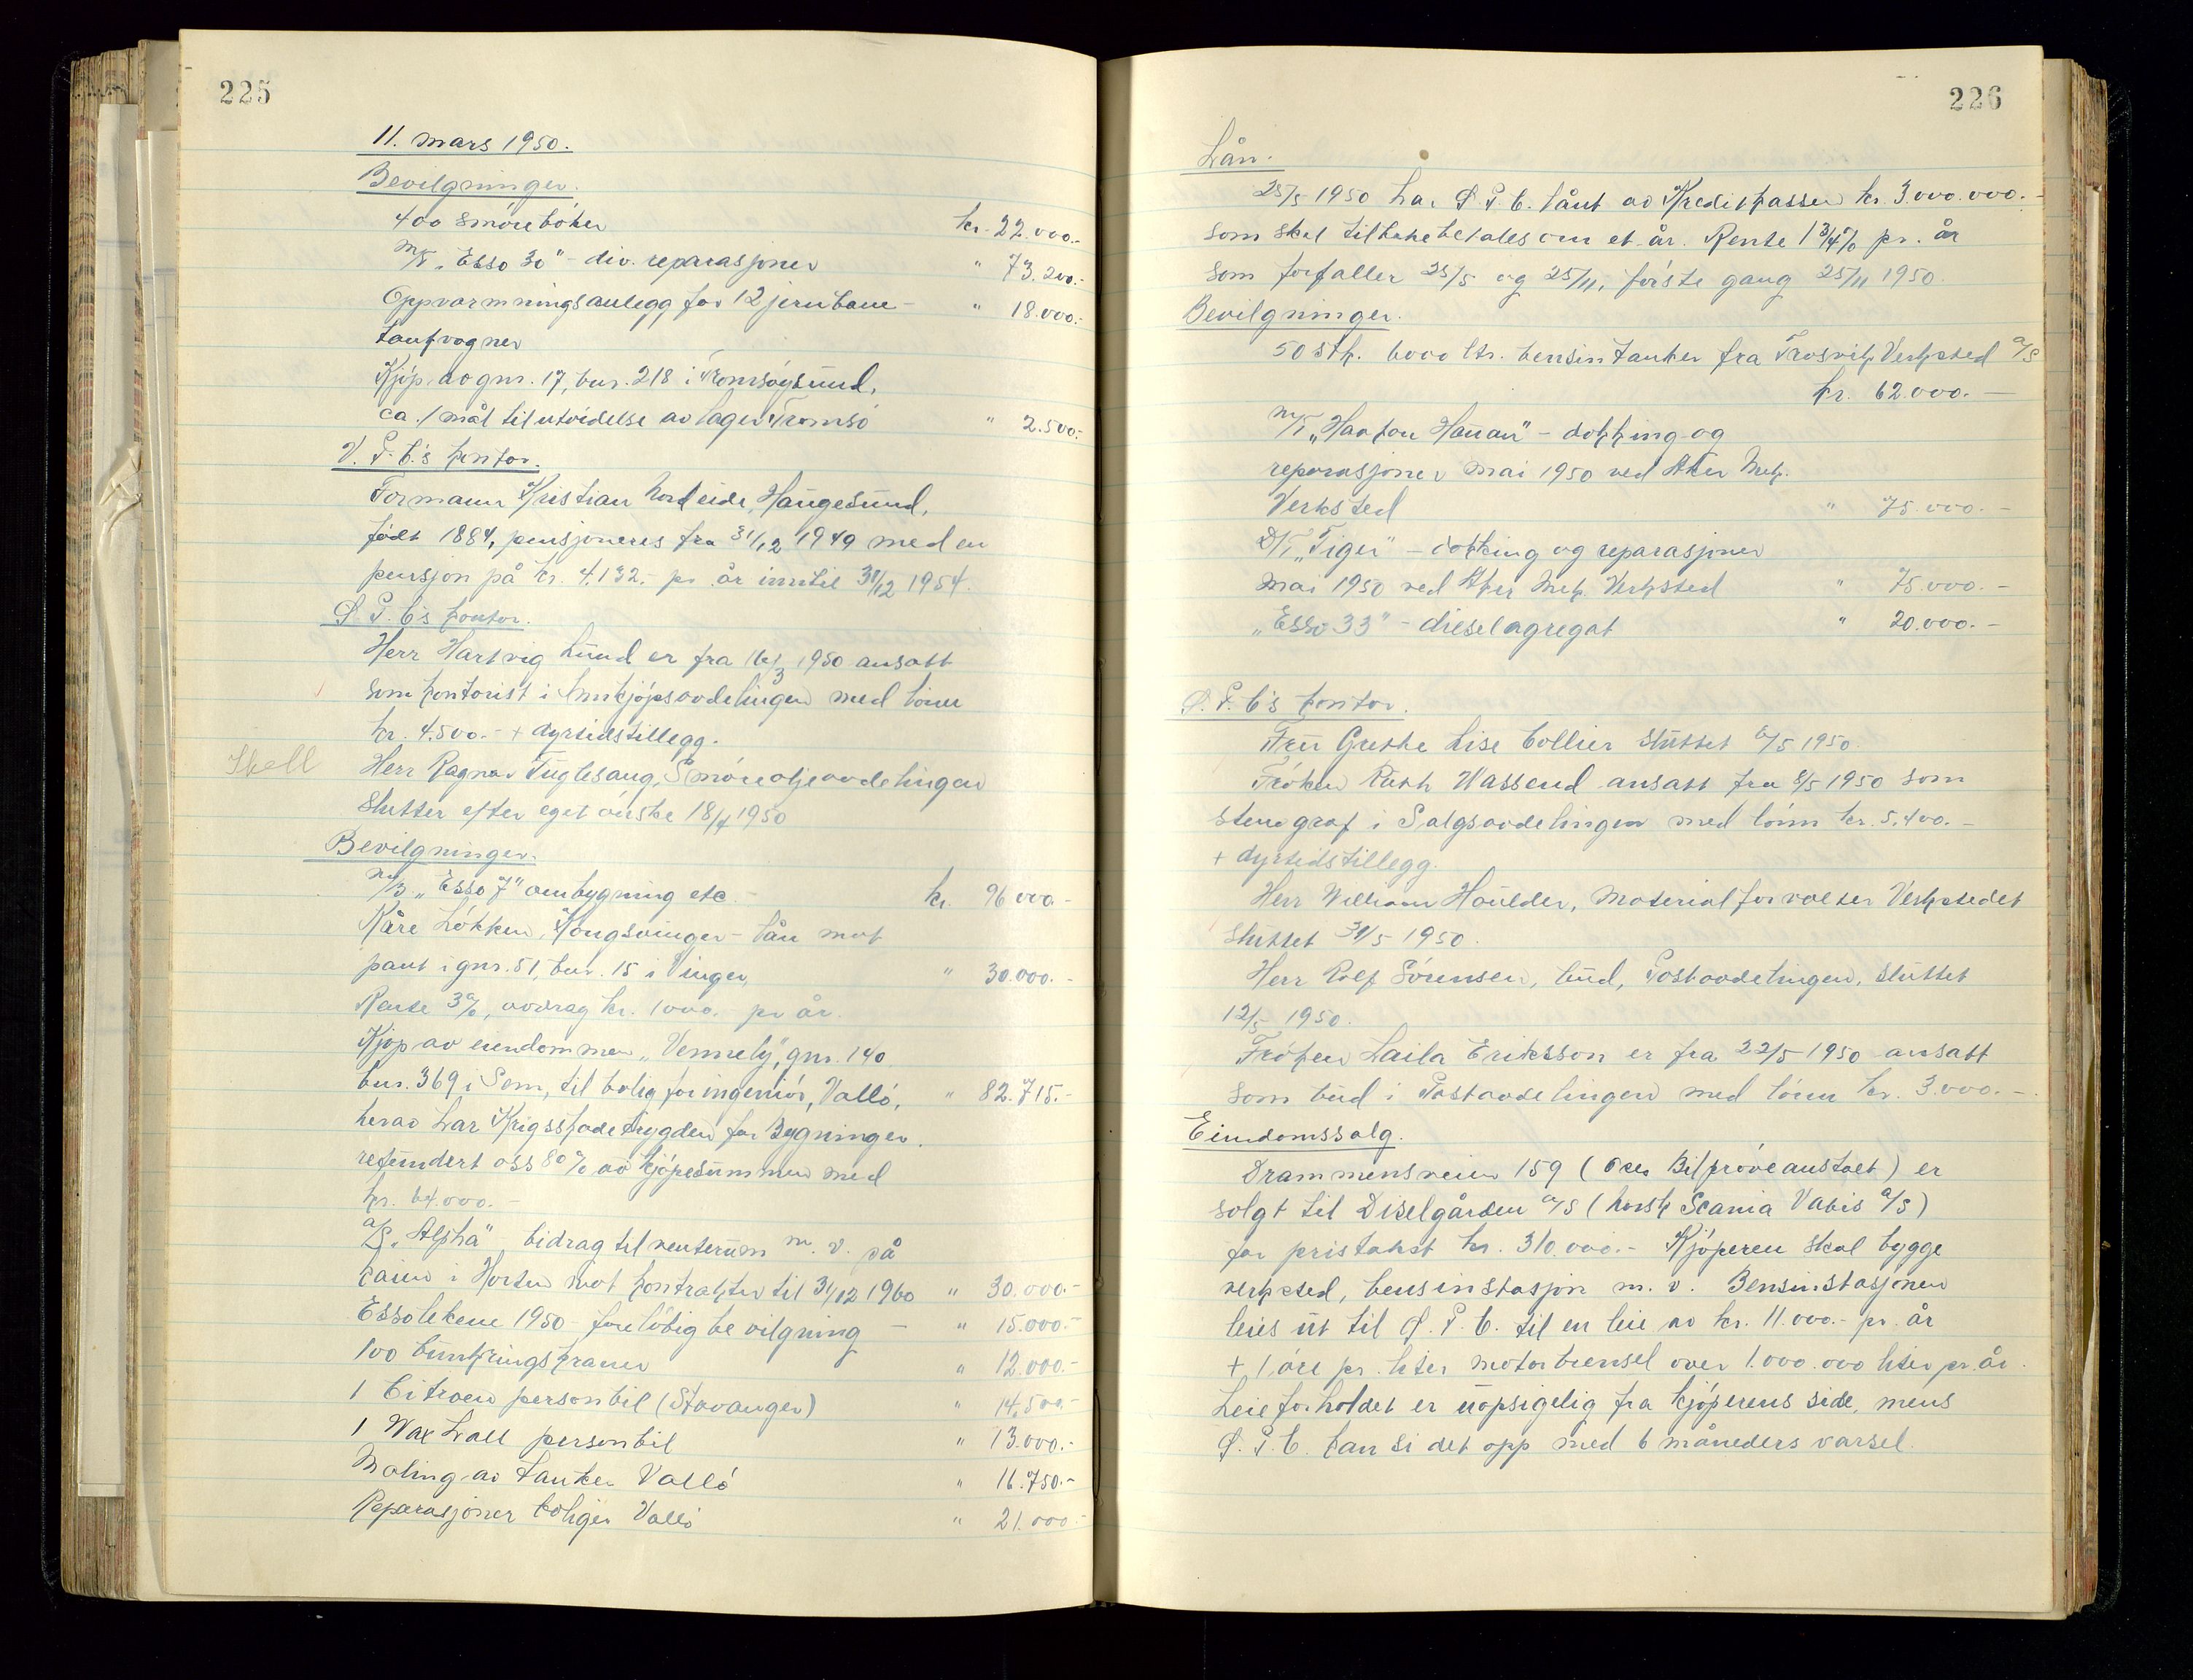 225
11. mars 1950.
Bevilgninger.
400 smörebøker kr. 22.000.-
M/T "Esso 30" - div. reparasjoner " 73.200.-
Oppvarmningsanlegg for 12 jernbane- " 18.000.-
tankvogner
Kjøp av gnr. 17, bnr. 218 i Tromsøysund,
ca. 1 mål til utvidelse av lager Tromsö " 2.500.-
V. P. C's kontor.
Formann Kristian Nordeide, Haugesund,
født 1884, pensjoneres fra 31/12 1949 med en
pensjon på kr. 4.132,- pr. år inntil 31/12 1954.
Ö. P. C's kontor.
Herr Hartvig Lund er fra 16/3 1950 ansatt
som kontorist i Innkjøpsavdelingen med lönn
kr. 4.500.- + dyrtidstillegg.
Skell
Herr Ragnar Fuglesang, Smöreoljeavdelingen
slutter efter eget önske 18/4 1950
Bevilgninger.
M/B "Esso 7" ombygning etc. - kr. 96.000.-
Kåre Lökken, Kongsvinger - lån mot
pant i gnr. 51, bnr. 15 i Vinger, " 30.000.-
Rente 3%, avdrag kr. 1000.- pr. år.
Kjøp av eiendommen "Vennely", gnr. 140
bnr. 369 i Sem, til bolig for ingeniör, Vallö, " 82.715.-
herav har Krigsskadetrygden for Bygninger
refundert oss 80% av kjöpesummen med
kr. 64.000.-
A/S "Alpha" - bidrag til venterum m. v. på
kaien i Horten mot kontrakter til 31/12 1960 " 30.000.-
Essolekene 1950 - forelöbig bevilgning - " 15.000.-
100 bunkringskraner " 12.000.-
1 Citroen personbil (Stavanger) " 14.500.-
1 Wauxhall personbil " 13.000.-
Maling av tanker Vallö " 16.750.-
Reparasjoner boliger Vallö " 21.000.-
226
Lån.
25/5 1950 har Ö. P. C. lånt av Kreditkassen kr. 3.000.000.-
som skal tilbakebetales om et år. Rente 1 3/4% pr. år
som forfaller 25/5 og 25/11, förste gang 25/11 1950.
Bevilgninger.
50 stk. 6000 ltr. bensintanker fra Trosvik Verksted A/S
kr. 62.000.-
M/T "Haakon Hauan" - dokking og
reparasjoner mai 1950 ved Aker Mek.
Verksted " 75.000.-
D/T "Tiger" - dokking og reparasjoner
mai 1950 ved Aker Mek. Verksted " 75.000.-
"Esso 33" - dieselagregat " 20.000.-
Ö. P. C's kontor.
Fru Grethe Lise Collier sluttet 6/5 1950.
Fröken Ruth Wassend ansatt fra 8/5 1950 som
stenograf i Salgsavdelingen med lönn kr. 5.400.-
+ dyrtidstillegg.
Herr William Houlder, Materialforvalter Verkstedet
sluttet 31/5 1950.
Herr Rolf Sörensen, bud, Postavdelingen, sluttet
12/5 1950.
Fröken Laila Eriksson er fra 22/5 1950 ansatt
som bud i Postavdelingen med lönn kr. 3.000.-
Eiendomssalg.
Drammensveien 159 ( Bilpröveanstalt) er
solgt til Diselgården A/S (Norsk Scania Vabis A/S)
for pristakst kr. 310.000.- Kjöperen skal bygge
verksted, bensinstasjon m. v. Bensinstasjonen
leies ut til Ö. P. C. til en leie av kr. 11.000.- pr. år
+ 1 öre pr. liter motorbrensel over 1.000.000 liter pr. år.
Leieforholdet er uopsigelig fra kjöperens side, mens
Ö. P. C. kan si det opp med 6 måneders varsel.